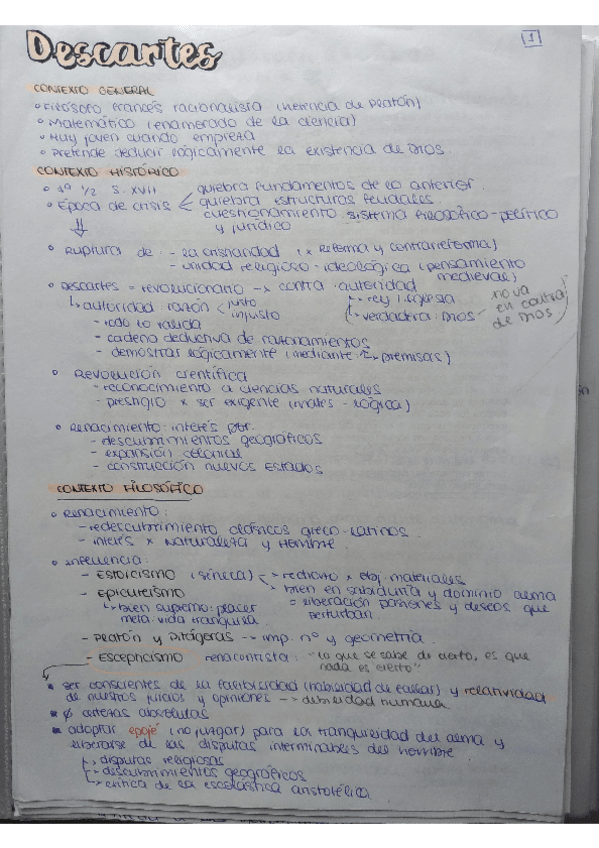 Descartes
1
CONTEXTO GENERAL
• Filósofo francés racionalista (herencia de Platón)
• Matemático (enamorado de la ciencia)
• Muy joven cuando empieza
• Pretende deducir lógicamente la existencia de Dios
CONTEXTO HISTÓRICO
• 1ª 1/2 S. XVII
quiebra fundamentos de lo anterior.
• Época de crisis < quiebra estructuras feudales
cuestionamiento sistema filosófico-político
y jurídico
• Ruptura de - la cristiandad (x Reforma y contrarreforma)
- unidad religioso-ideológica (pensamiento
medieval)
• Descartes = revolucionario → contra autoridad
↳ autoridad: razón < justo
injusto
rey / iglesia
verdadera: Dios
no va
en contra
de Dios
!
- todo lo valida
- cadena deductiva de razonamientos
- demostrar lógicamente (mediante premisas)
• Revolución científica
- reconocimiento a ciencias naturales
- prestigio x ser exigente (mates - lógica)
• Renacimiento: interés por:
- descubrimientos geográficos
- expansión colonial
- construcción nuevos Estados
CONTEXTO FILOSÓFICO
• Renacimiento:
- redescubrimiento clásicos greco-latinos.
- interés x Naturaleza y Hombre.
• Influencia:
- Estoicismo (Séneca) → rechazo x obj. materiales
bien en sabiduría y dominio alma
= liberación pasiones y deseos que
perturban.
- Epicureísmo
↳ bien supremo: placer
meta: vida tranquila
- Platón y Pitágoras → imp. nº y geometría.
- Escepticismo renacentista: "lo que se sabe de cierto, es que
nada es cierto"
▪ ser conscientes de la falibilidad (habilidad de fallar) y relatividad
de nuestros juicios y opiniones → debilidad humana
▪ ∅ certezas absolutas
▪ adoptar epojé (no juzgar) para la tranquilidad del alma y
liberarse de las disputas interminables del hombre
↳ disputas religiosas
↳ descubrimientos geográficos
↳ crítica de la escolástica aristotélica